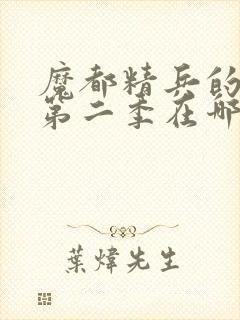 魔都精兵的
第二季在哪
葉煒先生